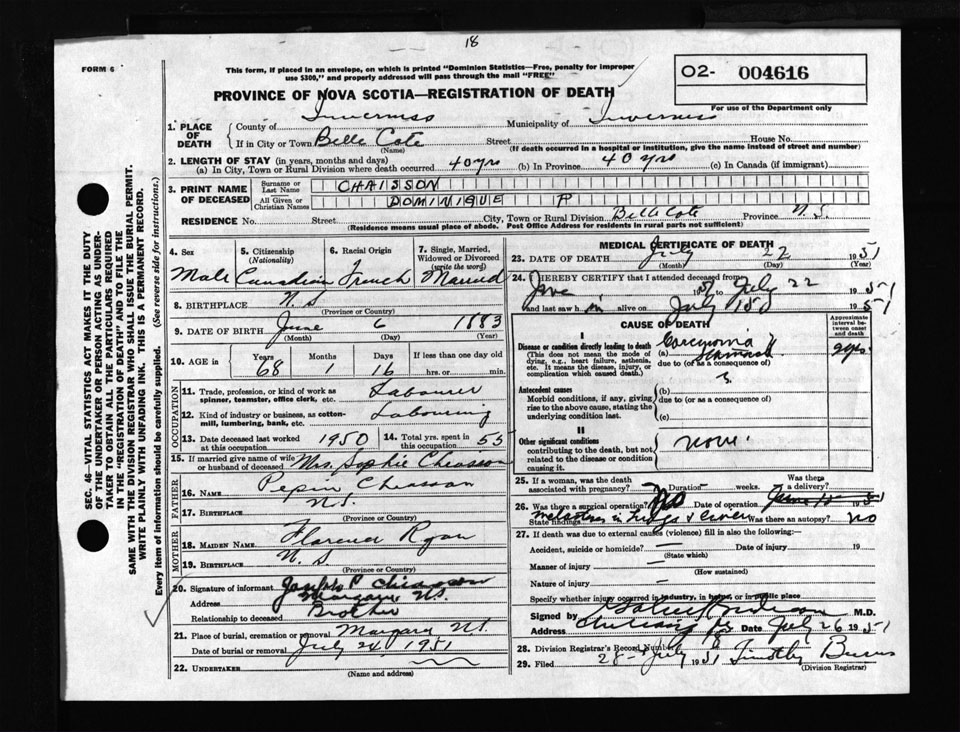 18
FORM 6
This form, if placed in an envelope, on which is printed "Dominion Statistics—Free, penalty for improper
use $300," and properly addressed will pass through the mail "FREE"
02- 004616
For use of the Department only
PROVINCE OF NOVA SCOTIA—REGISTRATION OF DEATH
1. PLACE OF DEATH { County of Inverness Municipality of Inverness
If in City or Town Belle Cote Street House No.
(Name) (If death occurred in a hospital or institution, give the name instead of street and number)
2. LENGTH OF STAY (in years, months and days)
(a) In City, Town or Rural Division where death occurred 40 yrs (b) In Province 40 yrs (c) In Canada (if immigrant)
3. PRINT NAME OF DECEASED { Surname or Last Name CHAISSON
All Given or Christian Names DOMINIQUE P
RESIDENCE No. Street City, Town or Rural Division Belle Cote Province N.S.
(Residence means usual place of abode. Post Office Address for residents in rural parts not sufficient)
4. Sex Male
5. Citizenship (Nationality) Canadian
6. Racial Origin French
7. Single, Married, Widowed or Divorced (write the word) Married
8. BIRTHPLACE N.S
(Province or Country)
9. DATE OF BIRTH June 6 1883
(Month) (Day) (Year)
10. AGE in Years 68 Months 1 Days 16 If less than one day old
hrs. or min.
OCCUPATION
11. Trade, profession, or kind of work as spinner, teamster, office clerk, etc. Labourer
12. Kind of industry or business, as cotton-mill, lumbering, bank, etc. Labouring
13. Date deceased last worked at this occupation 1950
14. Total yrs. spent in this occupation 55
15. If married give name of wife or husband of deceased Mrs. Sophie Chiasson
FATHER
16. NAME Pepin Chiasson
17. BIRTHPLACE N.S.
(Province or Country)
MOTHER
18. MAIDEN NAME Florence Ryan
19. BIRTHPLACE N.S
(Province or Country)
20. Signature of informant Joseph P Chiasson
Address Margaree N.S.
Relationship to deceased Brother
21. Place of burial, cremation or removal Margaree N.S.
Date of burial or removal July 24 1951
22. UNDERTAKER
(Name and address)
MEDICAL CERTIFICATE OF DEATH
23. DATE OF DEATH July 22 1951
(Month) (Day) (Year)
24. I HEREBY CERTIFY that I attended deceased from
June 1951 to July 22 1951
and last saw him alive on July 18 1951
CAUSE OF DEATH
Approximate interval between onset and death
I
Disease or condition directly leading to death
(This does not mean the mode of dying, e.g., heart failure, asthenia, etc. It means the disease, injury, or complication which caused death.)
(a) Carcinoma Stomach 2 yrs.
due to (or as a consequence of)
Antecedent causes
Morbid conditions, if any, giving rise to the above cause, stating the underlying condition last.
(b)
due to (or as a consequence of)
(c)
II
Other significant conditions
contributing to the death, but not related to the disease or condition causing it.
none.
25. If a woman, was the death associated with pregnancy? Duration weeks. Was there a delivery?
26. Was there a surgical operation? Date of operation June 1951
State findings Was there an autopsy? no
27. If death was due to external causes (violence) fill in also the following:
Accident, suicide or homicide? — Date of injury 19
(State which)
Manner of injury —
(How sustained)
Nature of injury —
Specify whether injury occurred in industry, in home, or in public place
Signed by M.D.
Address Date July 26 1951
28. Division Registrar's Record Number 8
29. Filed 28- July 1951 Timothy Burns
(Division Registrar)
SEC. 46—VITAL STATISTICS ACT MAKES IT THE DUTY
OF THE UNDERTAKER OR PERSON ACTING AS UNDER-
TAKER TO OBTAIN ALL THE PARTICULARS REQUIRED
IN THE "REGISTRATION OF DEATH" AND TO FILE THE
SAME WITH THE DIVISION REGISTRAR WHO SHALL ISSUE THE BURIAL PERMIT.
WRITE PLAINLY WITH UNFADING INK. THIS IS A PERMANENT RECORD.
Every item of information should be carefully supplied. (See reverse side for instructions.)